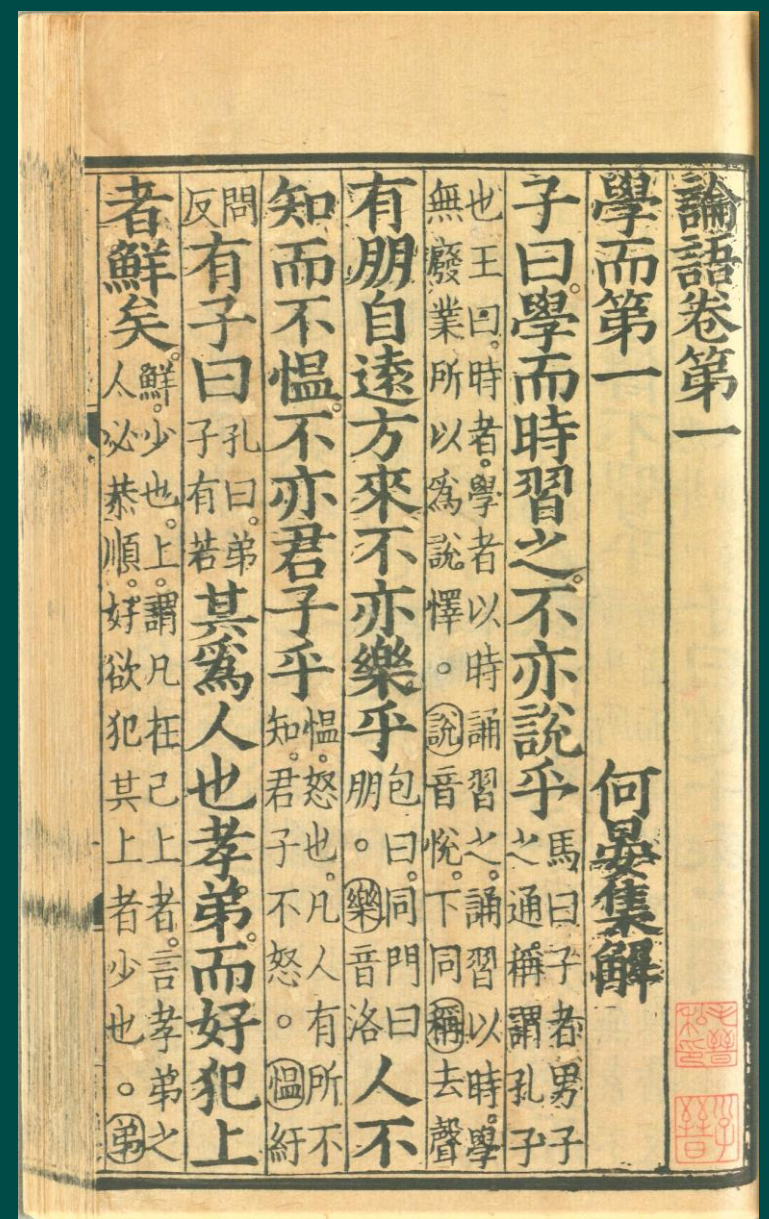 論語卷第一
學而第一 何晏集解
子曰。學而時習之。不亦說乎馬曰子者男子之通稱謂孔子
也王曰。時者。學者以時誦習之。誦習以時。學無廢業所以爲說懌。○說音悅。下同稱去聲
有朋自遠方來不亦樂乎包曰。同門曰朋。○樂音洛人不
知而不慍。不亦君子乎慍。怒也。凡人有所不知。君子不怒。○慍紆
問反有子曰孔曰。弟子有若其爲人也孝弟。而好犯上
者鮮矣。鮮。少也。上。謂凡在己上者。言孝弟之人必恭順。好欲犯其上者少也。○弟
毛晉私印
子晉